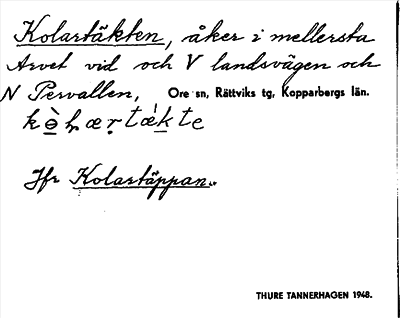 Kolartäkten, åker i mellersta
Arvet vid och V landsvägen och
N Pervallen, Ore sn, Rättviks tg, Kopparbergs län.
Jfr Kolartäppan.
THURE TANNERHAGEN 1948.